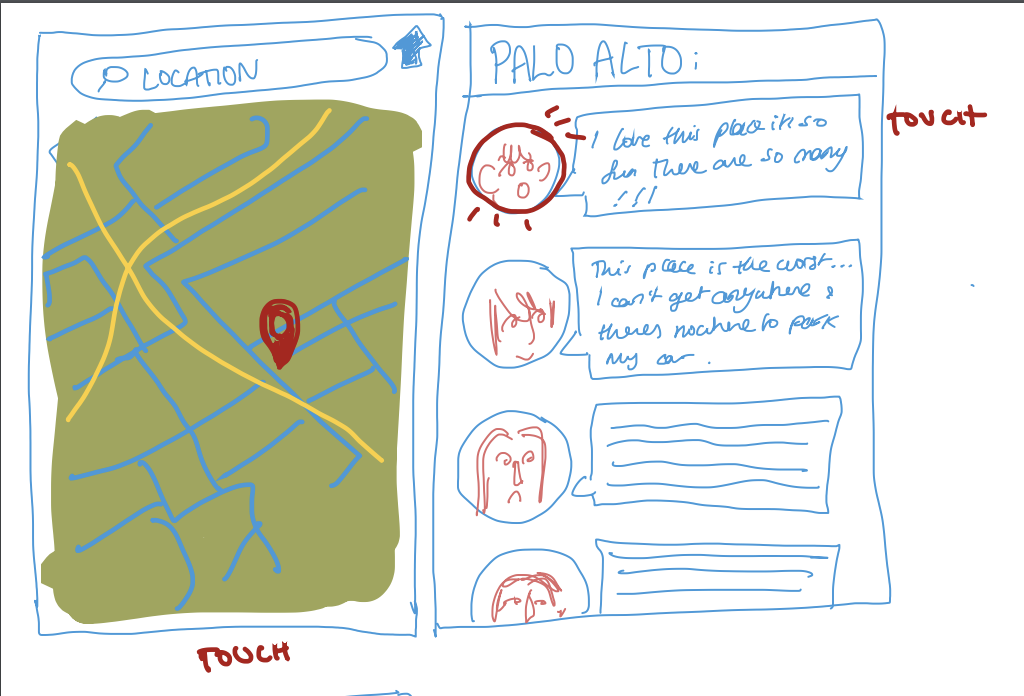 LOCATION
PALO ALTO:
I love this place its so
fun there are so many
!!!
This place is the worst...
I can't get anywhere &
theres nowhere to park
my car.
TOUCH
TOUCH